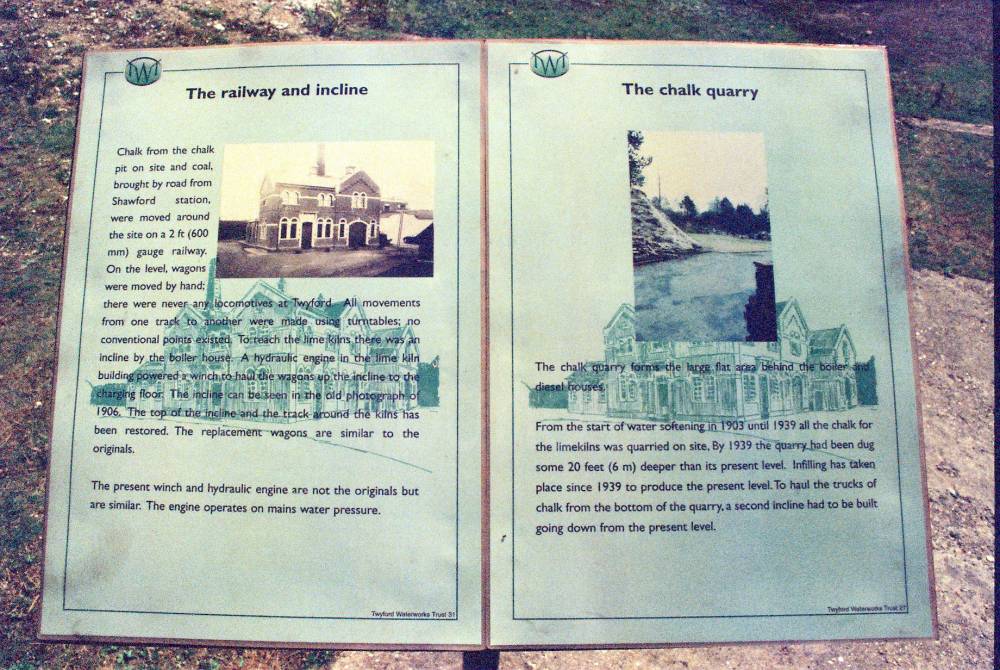 TWT
The railway and incline
Chalk from the chalk
pit on site and coal,
brought by road from
Shawford station,
were moved around
the site on a 2 ft (600
mm) gauge railway.
On the level, wagons
were moved by hand;
there were never any locomotives at Twyford. All movements
from one track to another were made using turntables; no
conventional points existed. To reach the lime kilns there was an
incline by the boiler house. A hydraulic engine in the lime kiln
building powered a winch to haul the wagons up the incline to the
charging floor. The incline can be seen in the old photograph of
1906. The top of the incline and the track around the kilns has
been restored. The replacement wagons are similar to the
originals.
The present winch and hydraulic engine are not the originals but
are similar. The engine operates on mains water pressure.
Twyford Waterworks Trust 31
TWT
The chalk quarry
The chalk quarry forms the large flat area behind the boiler and
diesel houses.
From the start of water softening in 1903 until 1939 all the chalk for
the limekilns was quarried on site. By 1939 the quarry had been dug
some 20 feet (6 m) deeper than its present level. Infilling has taken
place since 1939 to produce the present level. To haul the trucks of
chalk from the bottom of the quarry, a second incline had to be built
going down from the present level.
Twyford Waterworks Trust 27